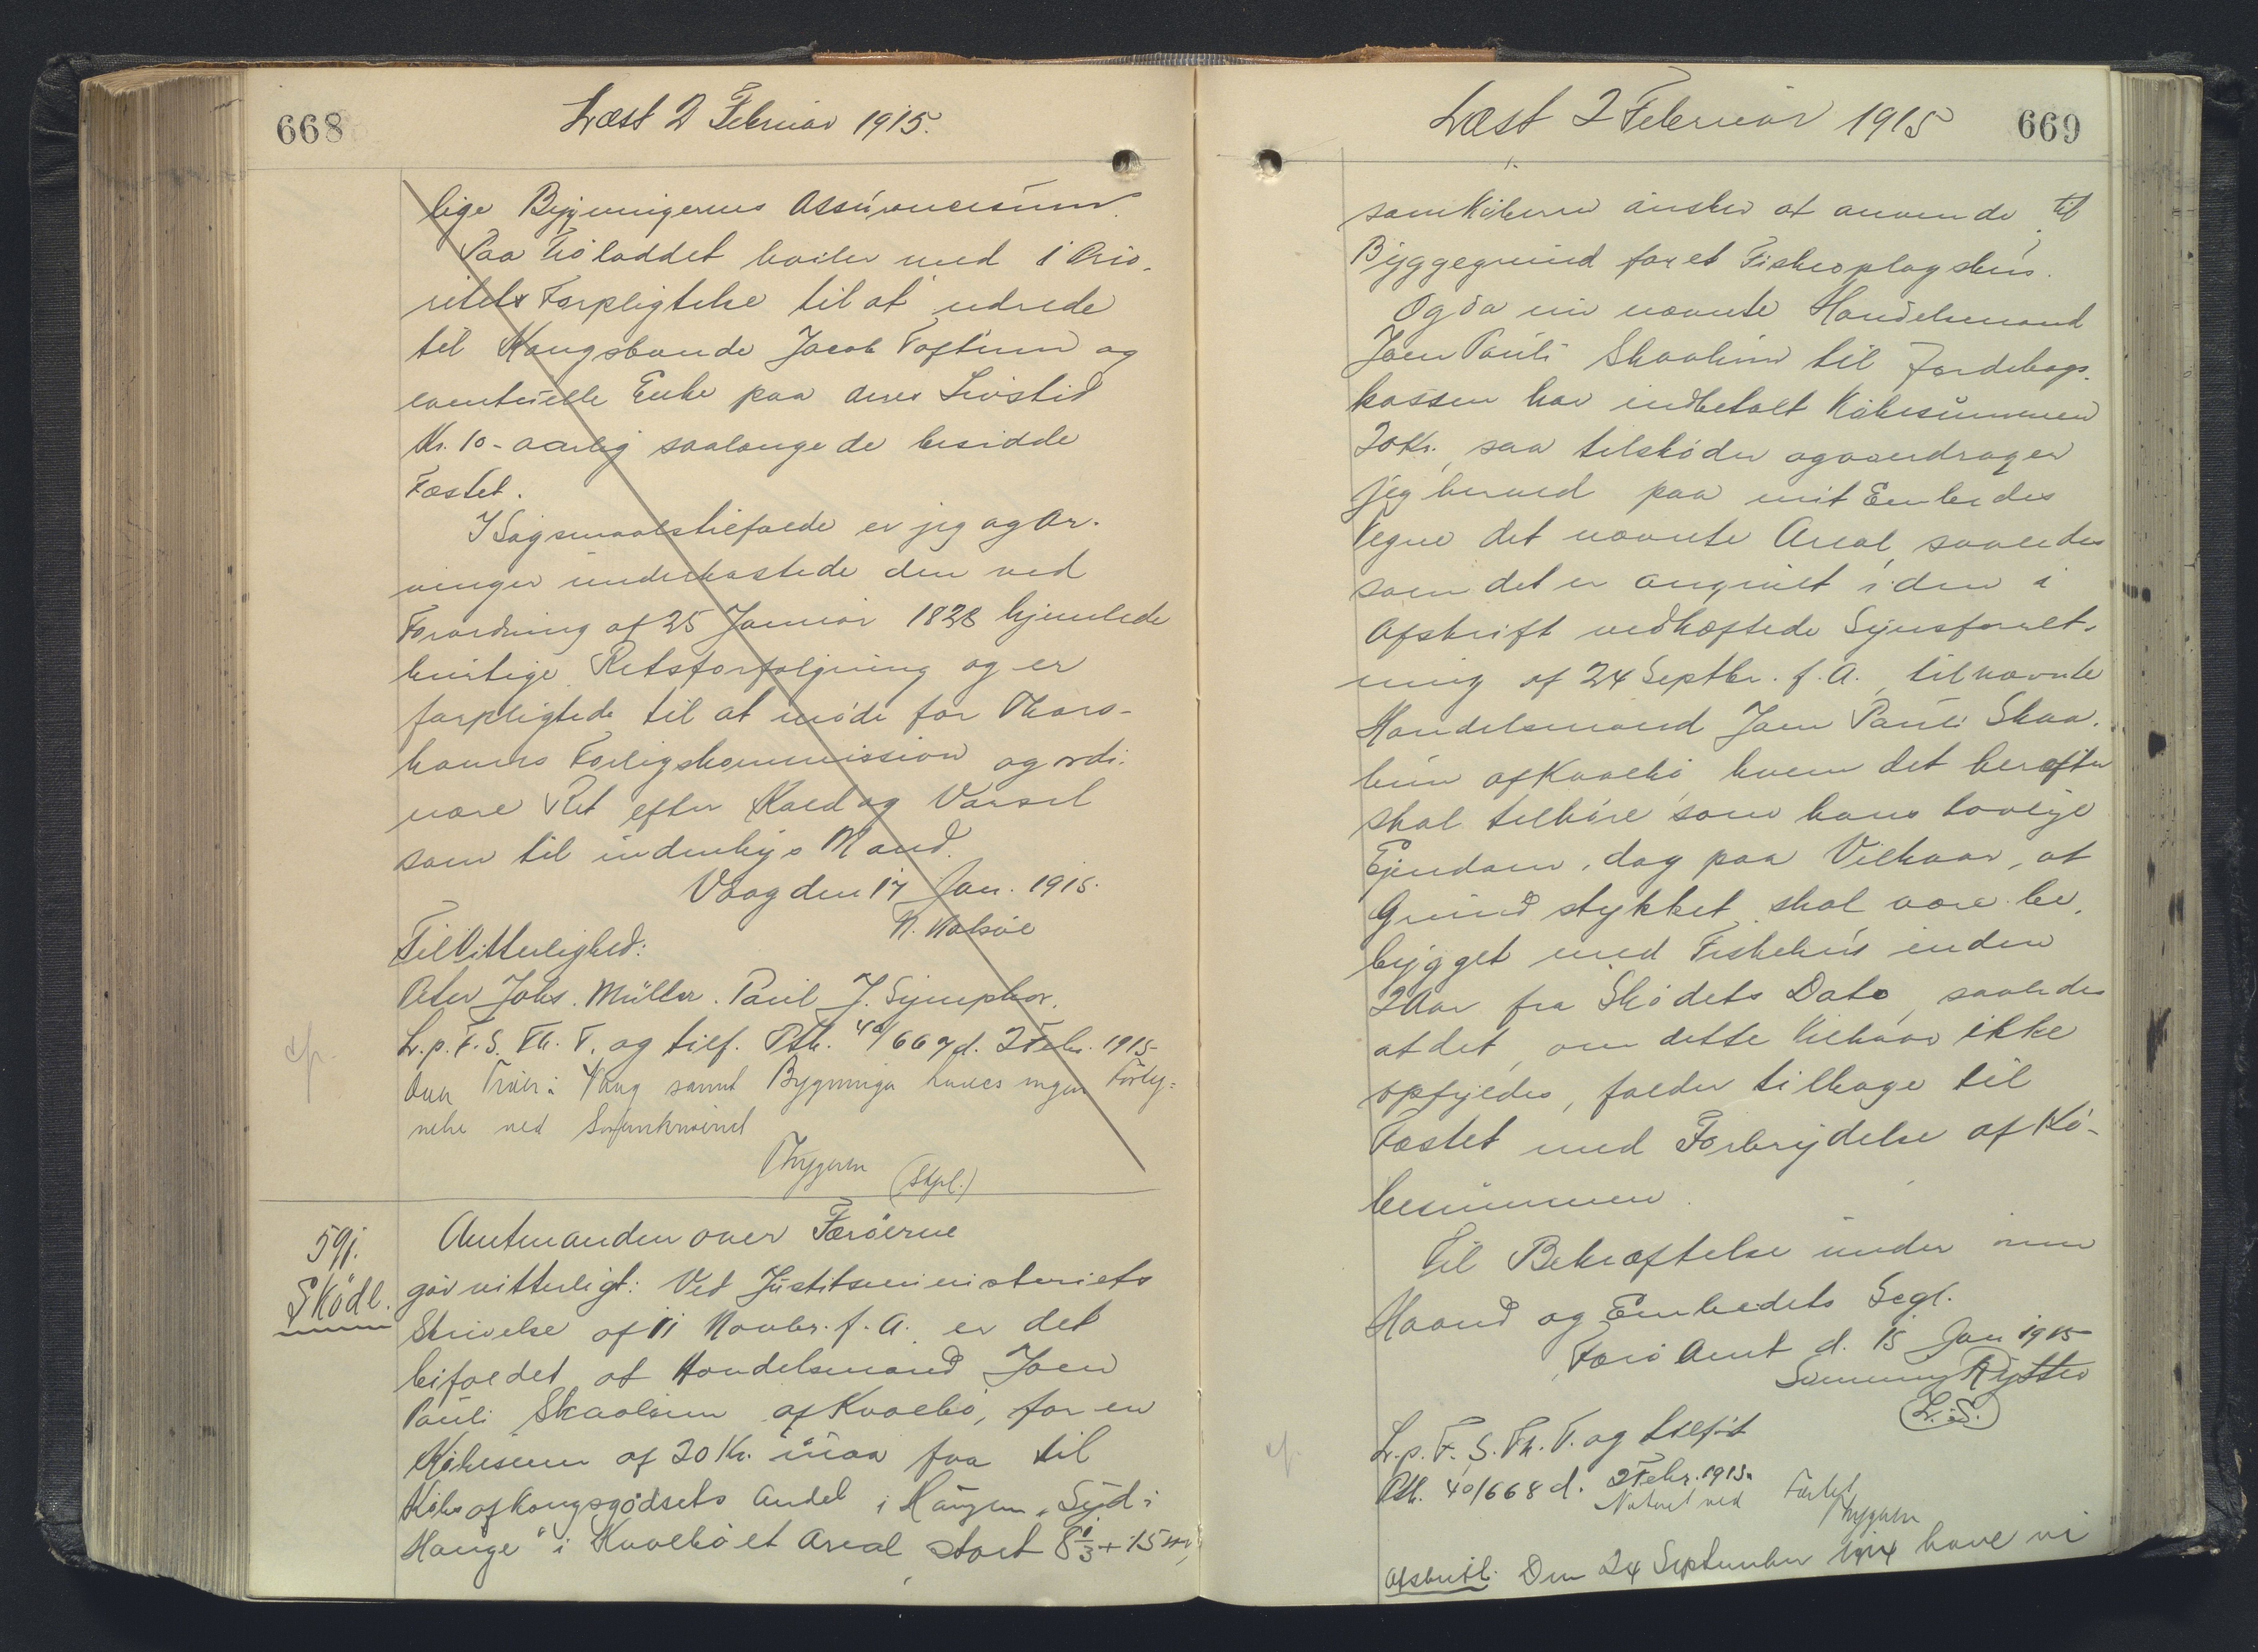 668
Læst 2 Februar 1915.
lige Bygningernes Assurancesum.
Paa Tróloddet hviler med 1 Prio-
ritets Forpligtelse til at udrede
til Kongsbonde Jacob Toftum og
eventuelle Enke paa deres Livstid
Kr. 10 - aarlig saalænge de besidde
Fæstet.
I Søgsmaalstilfælde er jeg og Ar-
vinger underkastede den ved
Forordning af 25 Januar 1828 hjemlede
hurtige Retsforfølgning og er
forpligtede til at møde for Thors-
havns Forligskommission og ordi-
nære Ret efter Kald og Varsel
som til indenbys Mand.
Vaag den 17 Jan. 1915.
N. Nolsøe
Til Vitterlighed:
Peter Johs. Müller. Paul J. Symphor.
L. p. F. S. Th. T. og tilf. Pth. 40/667 d. 2 Febr. 1915
Over Tróer i Vaag samt Bygninger haves ingen Forly-
nelse ved
Thygesen (Stpl.)
591.
Skøde.
cf.
Amtmanden over Færøerne
gør vitterligt: Ved Justitsministeriets
Skrivelse af 11 Novbr. f. A. er det
bifaldet at Handelsmand Joen
Pauli Skaalum af Kvalbø, for en
Købesum af 20 Kr. maa faa til
Købs af Kongsgodsets Andel i Haugen "Syd i
Hauge" i Kvalbø et Areal, stort 8 1/3 + 15 m,
Læst 2 Februar 1915
669
som Køberen ønsker at anvende til
Byggegrund for et Fiskeoplagshus.
Og da nu nævnte Handelsmand
Joen Pauli Skaalum til Jordebogs-
kassen har indbetalt Købesummen
20 Kr., saa tilskøder og overdrager
jeg herved paa mit Embedes
Vegne det nævnte Areal, saaledes
som det er angivet i den i
Afskrift vedhæftede Synsforret-
ning af 24 Septbr. f. A., til nævnte
Handelsmand Joen Pauli Skaa-
lum af Kvalbø, hvem det herefter
skal tilhøre som hans lovlige
Ejendom, dog paa Vilkaar, at
Grundstykket skal være be-
bygget med Fiskehus inden
2 Aar fra Skødets Dato, saaledes
at det, om dette Vilkaar ikke
opfyldes, falder tilbage til
Fæstet med Forbrydelse af Kø-
besummen.
Til Bekræftelse under min
Haand og Embedets Segl.
Færø Amt d. 15 Jan 1915
Svenning Rytter
(L. S.)
L. p. F. S. Th. T. og tilført
Pth. 40/668 d. 2 Febr. 1915.
Noteret ved Fæstet
Thygesen
cf.
Afskrift. Den 24 September 1914 have vi